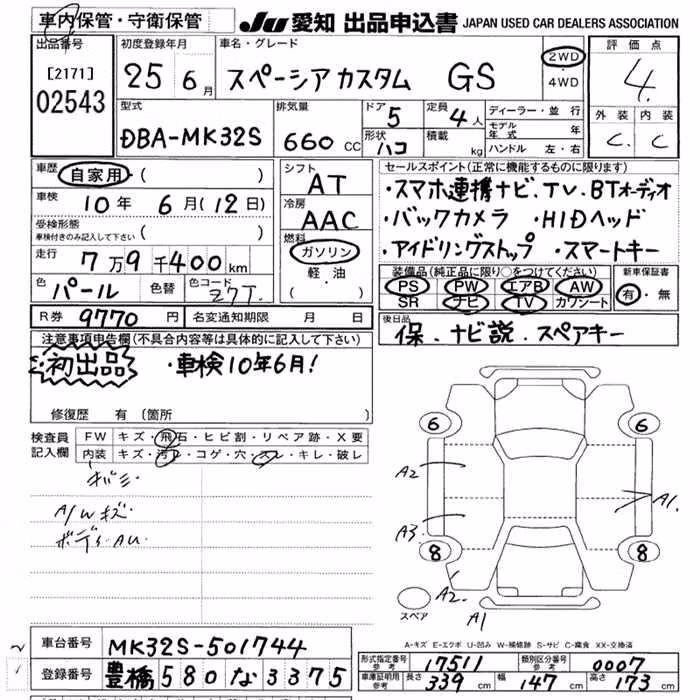 車内保管・守衛保管
JU 愛知 出品申込書 JAPAN USED CAR DEALERS ASSOCIATION
出品番号 初度登録年月 車名・グレード 評価点
[2171] 25年 6月 スペーシアカスタム GS 2WD・4WD 4.
02543
型式 排気量 ドア 5 定員 4人 ディーラー・並行 外装 内装
DBA-MK32S 660cc 形状 ハコ 積載 kg モデル年式 年 C. C
ハンドル 左・右
車歴 自家用・( ) シフト AT セールスポイント(正常に機能するものに限ります)
車検 10年 6月(12日) 冷房 AAC ・スマホ連携ナビ、TV、BTオーディオ
受検形態 ・バックカメラ ・HIDヘッド
車検付きのみ記入して下さい ( ) 燃料 ガソリン・軽油 ( ) ・アイドリングストップ ・スマートキー
走行 7万9千400km 装備品(純正品に限り○をつけてください) 新車保証書
色 パール 色替 色コード Z7T. PS PW エアB AW 有・無
SR ナビ TV カワシート
R券 9770円 名変通知期限 月 日 後日品
保、ナビ説、スペアキー
注意事項申告欄(不具合内容等は具体的に記入して下さい)
初出品 ・車検10年6月!
修復歴 有 (箇所 )
検査員 FW キズ・飛石・ヒビ割・リペア跡・X要
記入欄 内装 キズ・汚レ・コゲ・穴・スレ・キレ・破レ
A/Wキズ
ボディAU
6 6
A2 A1.
A3.
8 8
A2.
スペア A1
A-キズ E-エクボ U-凹み W-補修跡 S-サビ C-腐食 XX-交換済
車台番号 MK32S-501744
型式指定番号 参考 17511 類別区分番号 参考 0007
登録番号 豊橋 580 な 3375
車庫証明用 参考 長さ 339cm 幅 147cm 高さ 173cm